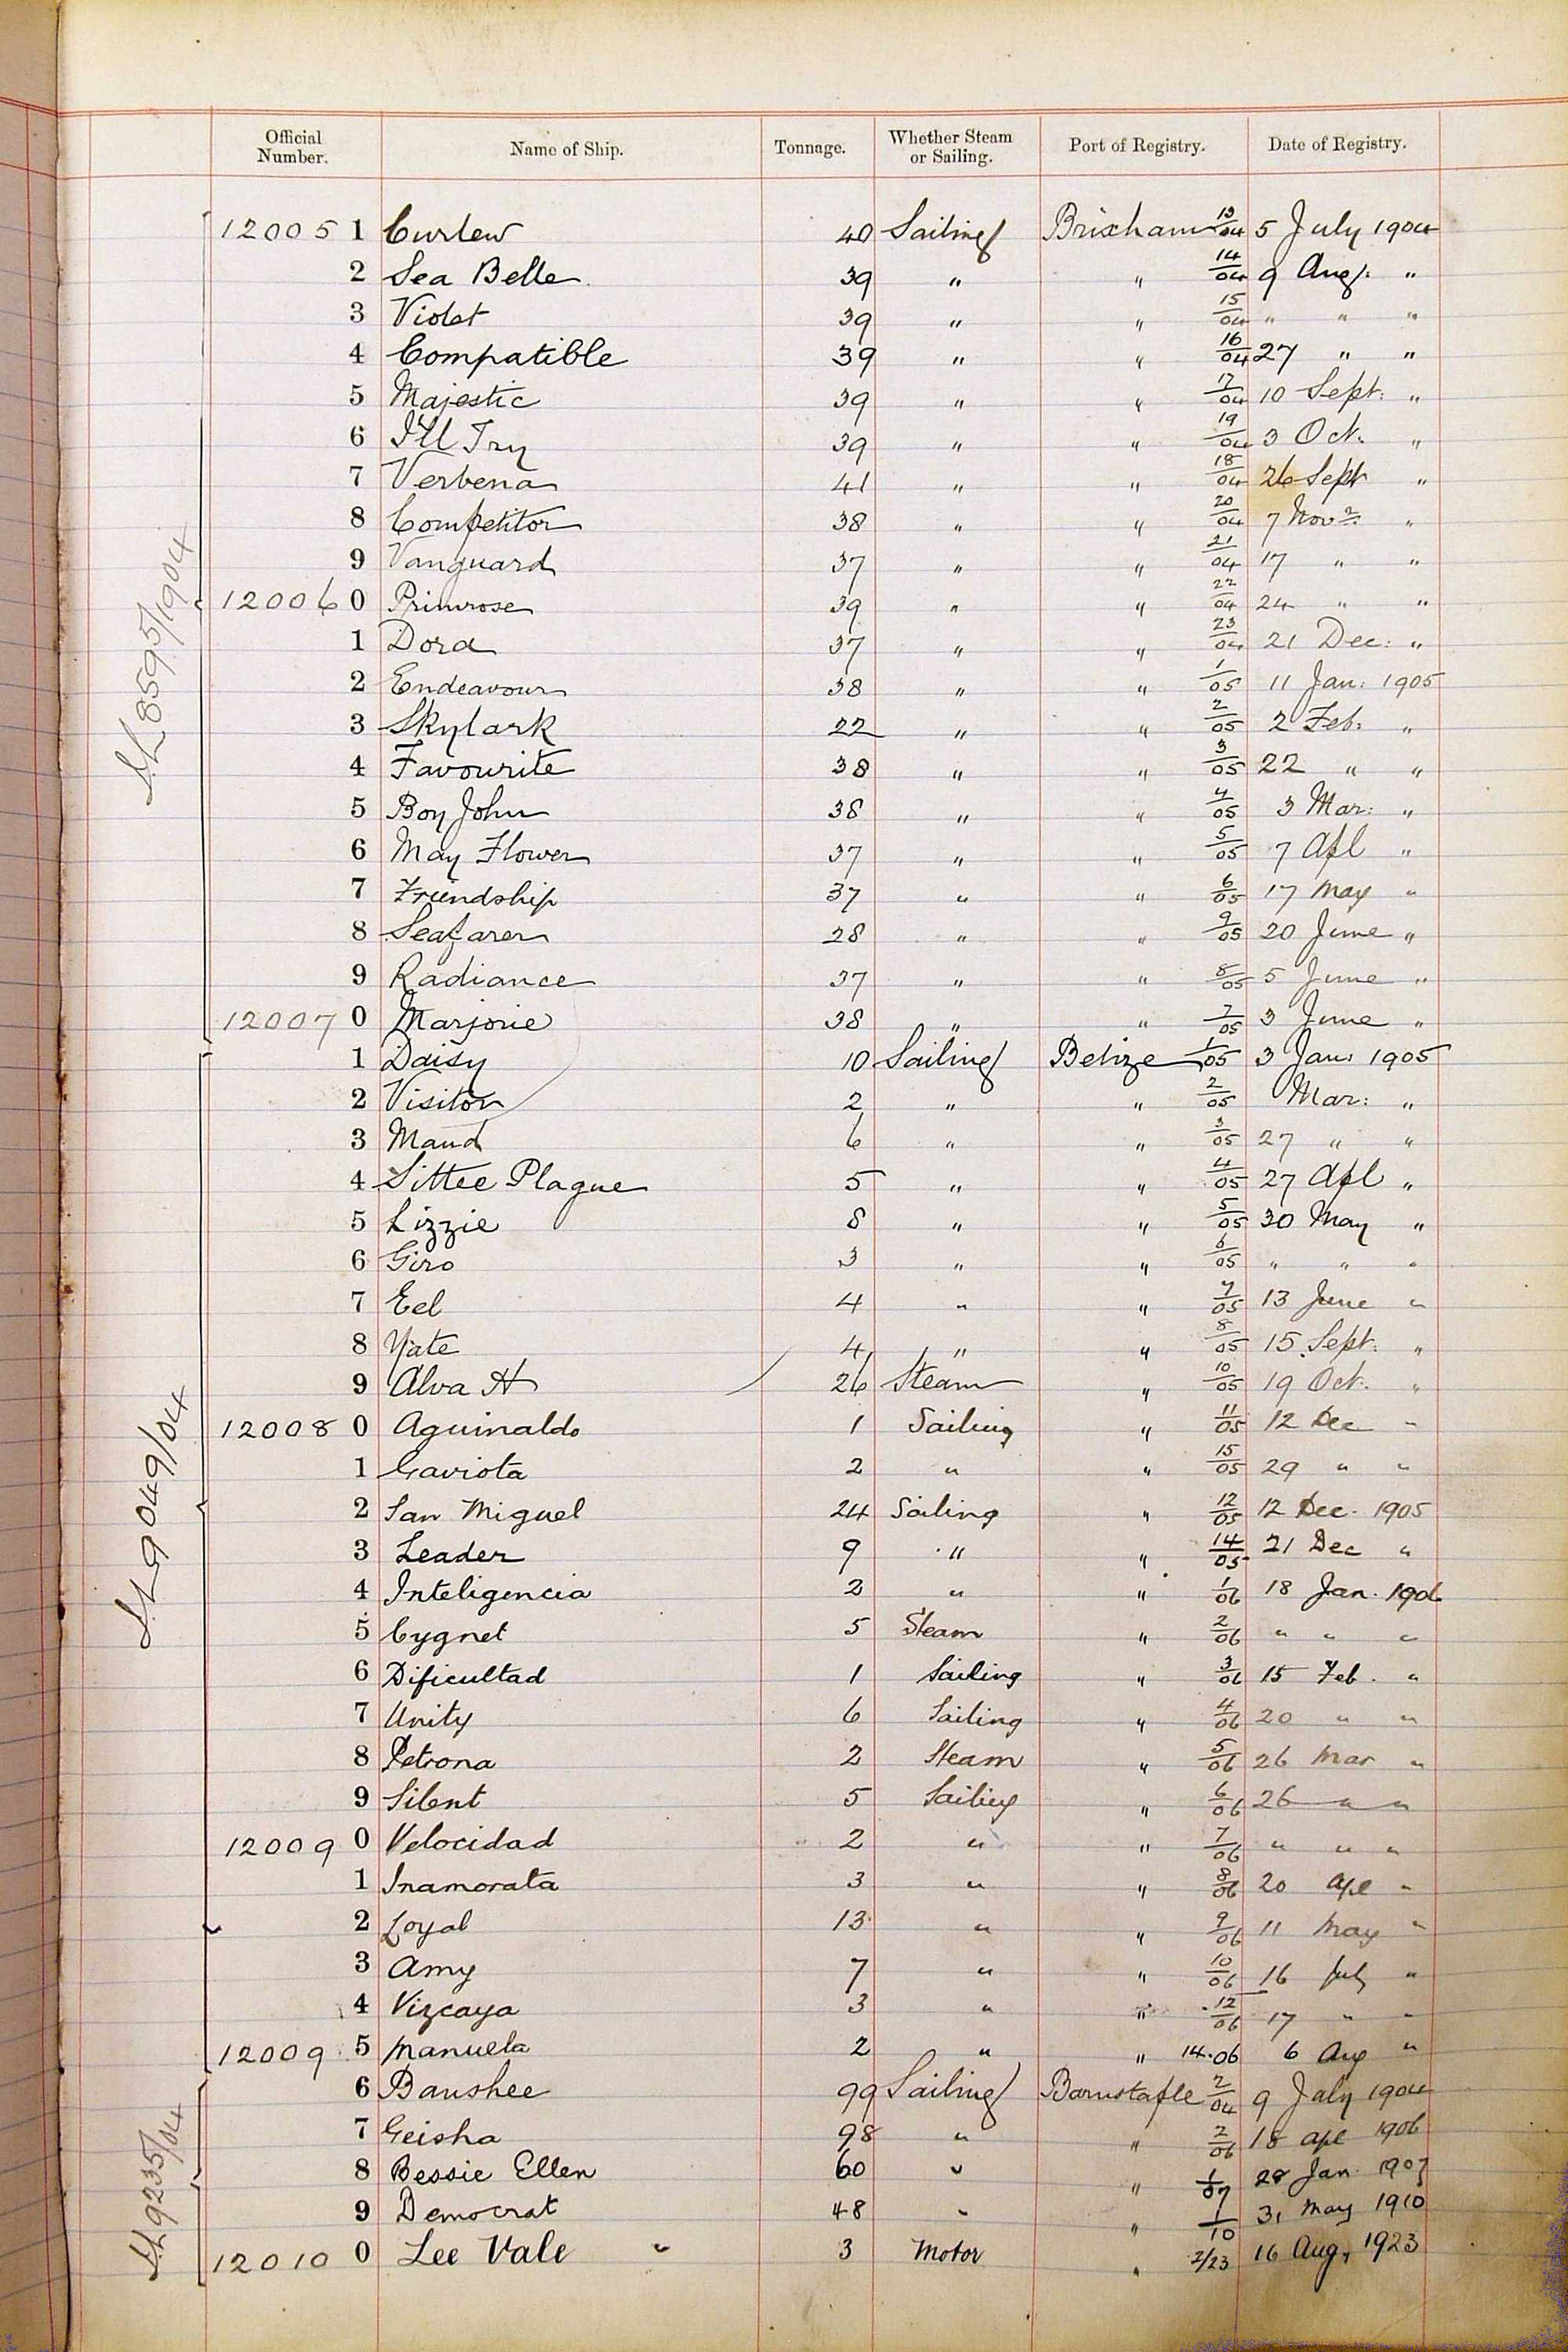 Official Number. Name of Ship. Tonnage. Whether Steam or Sailing. Port of Registry. Date of Registry.
12005 1 Curlew 40 Sailing Brixham 13/04 5 July 1904
2 Sea Belle 39 " " 14/04 9 Aug: "
3 Violet 39 " " 15/04 " " "
4 Compatible 39 " " 16/04 27 " "
5 Majestic 39 " " 17/04 10 Sept: "
6 I'll Try 39 " " 19/04 3 Oct. "
7 Verbena 41 " " 18/04 26 Sept "
8 Competitor 38 " " 20/04 7 Novr. "
9 Vanguard 37 " " 21/04 17 " "
12006 0 Primrose 39 " " 22/04 24 " "
1 Dora 37 " " 23/04 21 Dec: "
2 Endeavour 38 " " 1/05 11 Jan: 1905
3 Skylark 22 " " 2/05 2 Feb: "
4 Favourite 38 " " 3/05 22 " "
5 Boy John 38 " " 4/05 3 Mar: "
6 May Flower 37 " " 5/05 7 Apl "
7 Friendship 37 " " 6/05 17 May "
8 Seafarer 28 " " 9/05 20 June "
9 Radiance 37 " " 8/05 5 June "
12007 0 Marjorie 38 " " 7/05 3 June "
S.L 8595/1904
1 Daisy 10 Sailing Belize 1/05 3 Jan: 1905
2 Visitor 2 " " 2/05 Mar: "
3 Maud 6 " " 3/05 27 " "
4 Sittee Plague 5 " " 4/05 27 Apl "
5 Lizzie 8 " " 5/05 30 May "
6 Giro 3 " " 6/05 " " "
7 Eel 4 " " 7/05 13 June "
8 Yate 4 " " 8/05 15 Sept: "
9 Alva H 26 Steam " 10/05 19 Oct. "
12008 0 Aguinaldo 1 Sailing " 11/05 12 Dec "
1 Gaviota 2 " " 15/05 29 " "
2 San Miguel 24 Sailing " 12/05 12 Dec. 1905
3 Leader 9 " " 14/05 21 Dec "
4 Inteligencia 2 " " 1/06 18 Jan. 1906
5 Cygnet 5 Steam " 2/06 " " "
6 Dificultad 1 Sailing " 3/06 15 Feb. "
7 Unity 6 Sailing " 4/06 20 " "
8 Petrona 2 Steam " 5/06 26 Mar "
9 Silent 5 Sailing " 6/06 26 " "
12009 0 Velocidad 2 " " 7/06 " " "
1 Inamorata 3 " " 8/06 20 Apl "
2 Loyal 13 " " 9/06 11 May "
3 Amy 7 " " 10/06 16 July "
4 Vizcaya 3 " " 12/06 17 " "
12009 5 Manuela 2 " " 14.06 6 Aug "
S.L 9049/04
6 Banshee 99 Sailing Barnstaple 2/04 9 July 1904
7 Geisha 98 " " 2/06 18 Apl 1906
8 Bessie Ellen 60 " " 1/07 28 Jan 1907
9 Democrat 48 " " 1/10 31 May 1910
12010 0 Lee Vale " 3 Motor " 2/23 16 Aug, 1923
S.L 9235/04